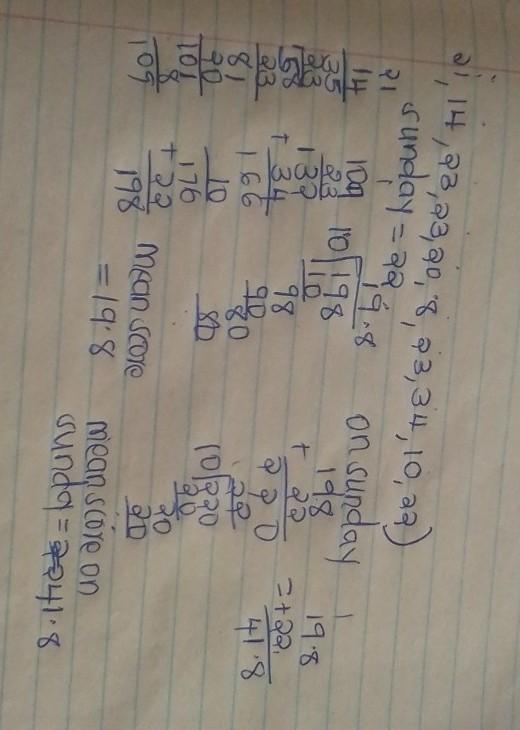 21, 14, 23, 23, 20, 8, 23, 34, 10, 22)
sunday = 22
21
14
35
23
58
23
81
20
101
8
109
109
23
132
+ 34
166
10
176
+ 22
198
19.8
10 198
10
98
90
80
80
mean score
= 19.8
on sunday
198
+ 22
220
22
10 220
20
20
20
mean score on
sunday = 41.8
1
19.8
=+22
41.8